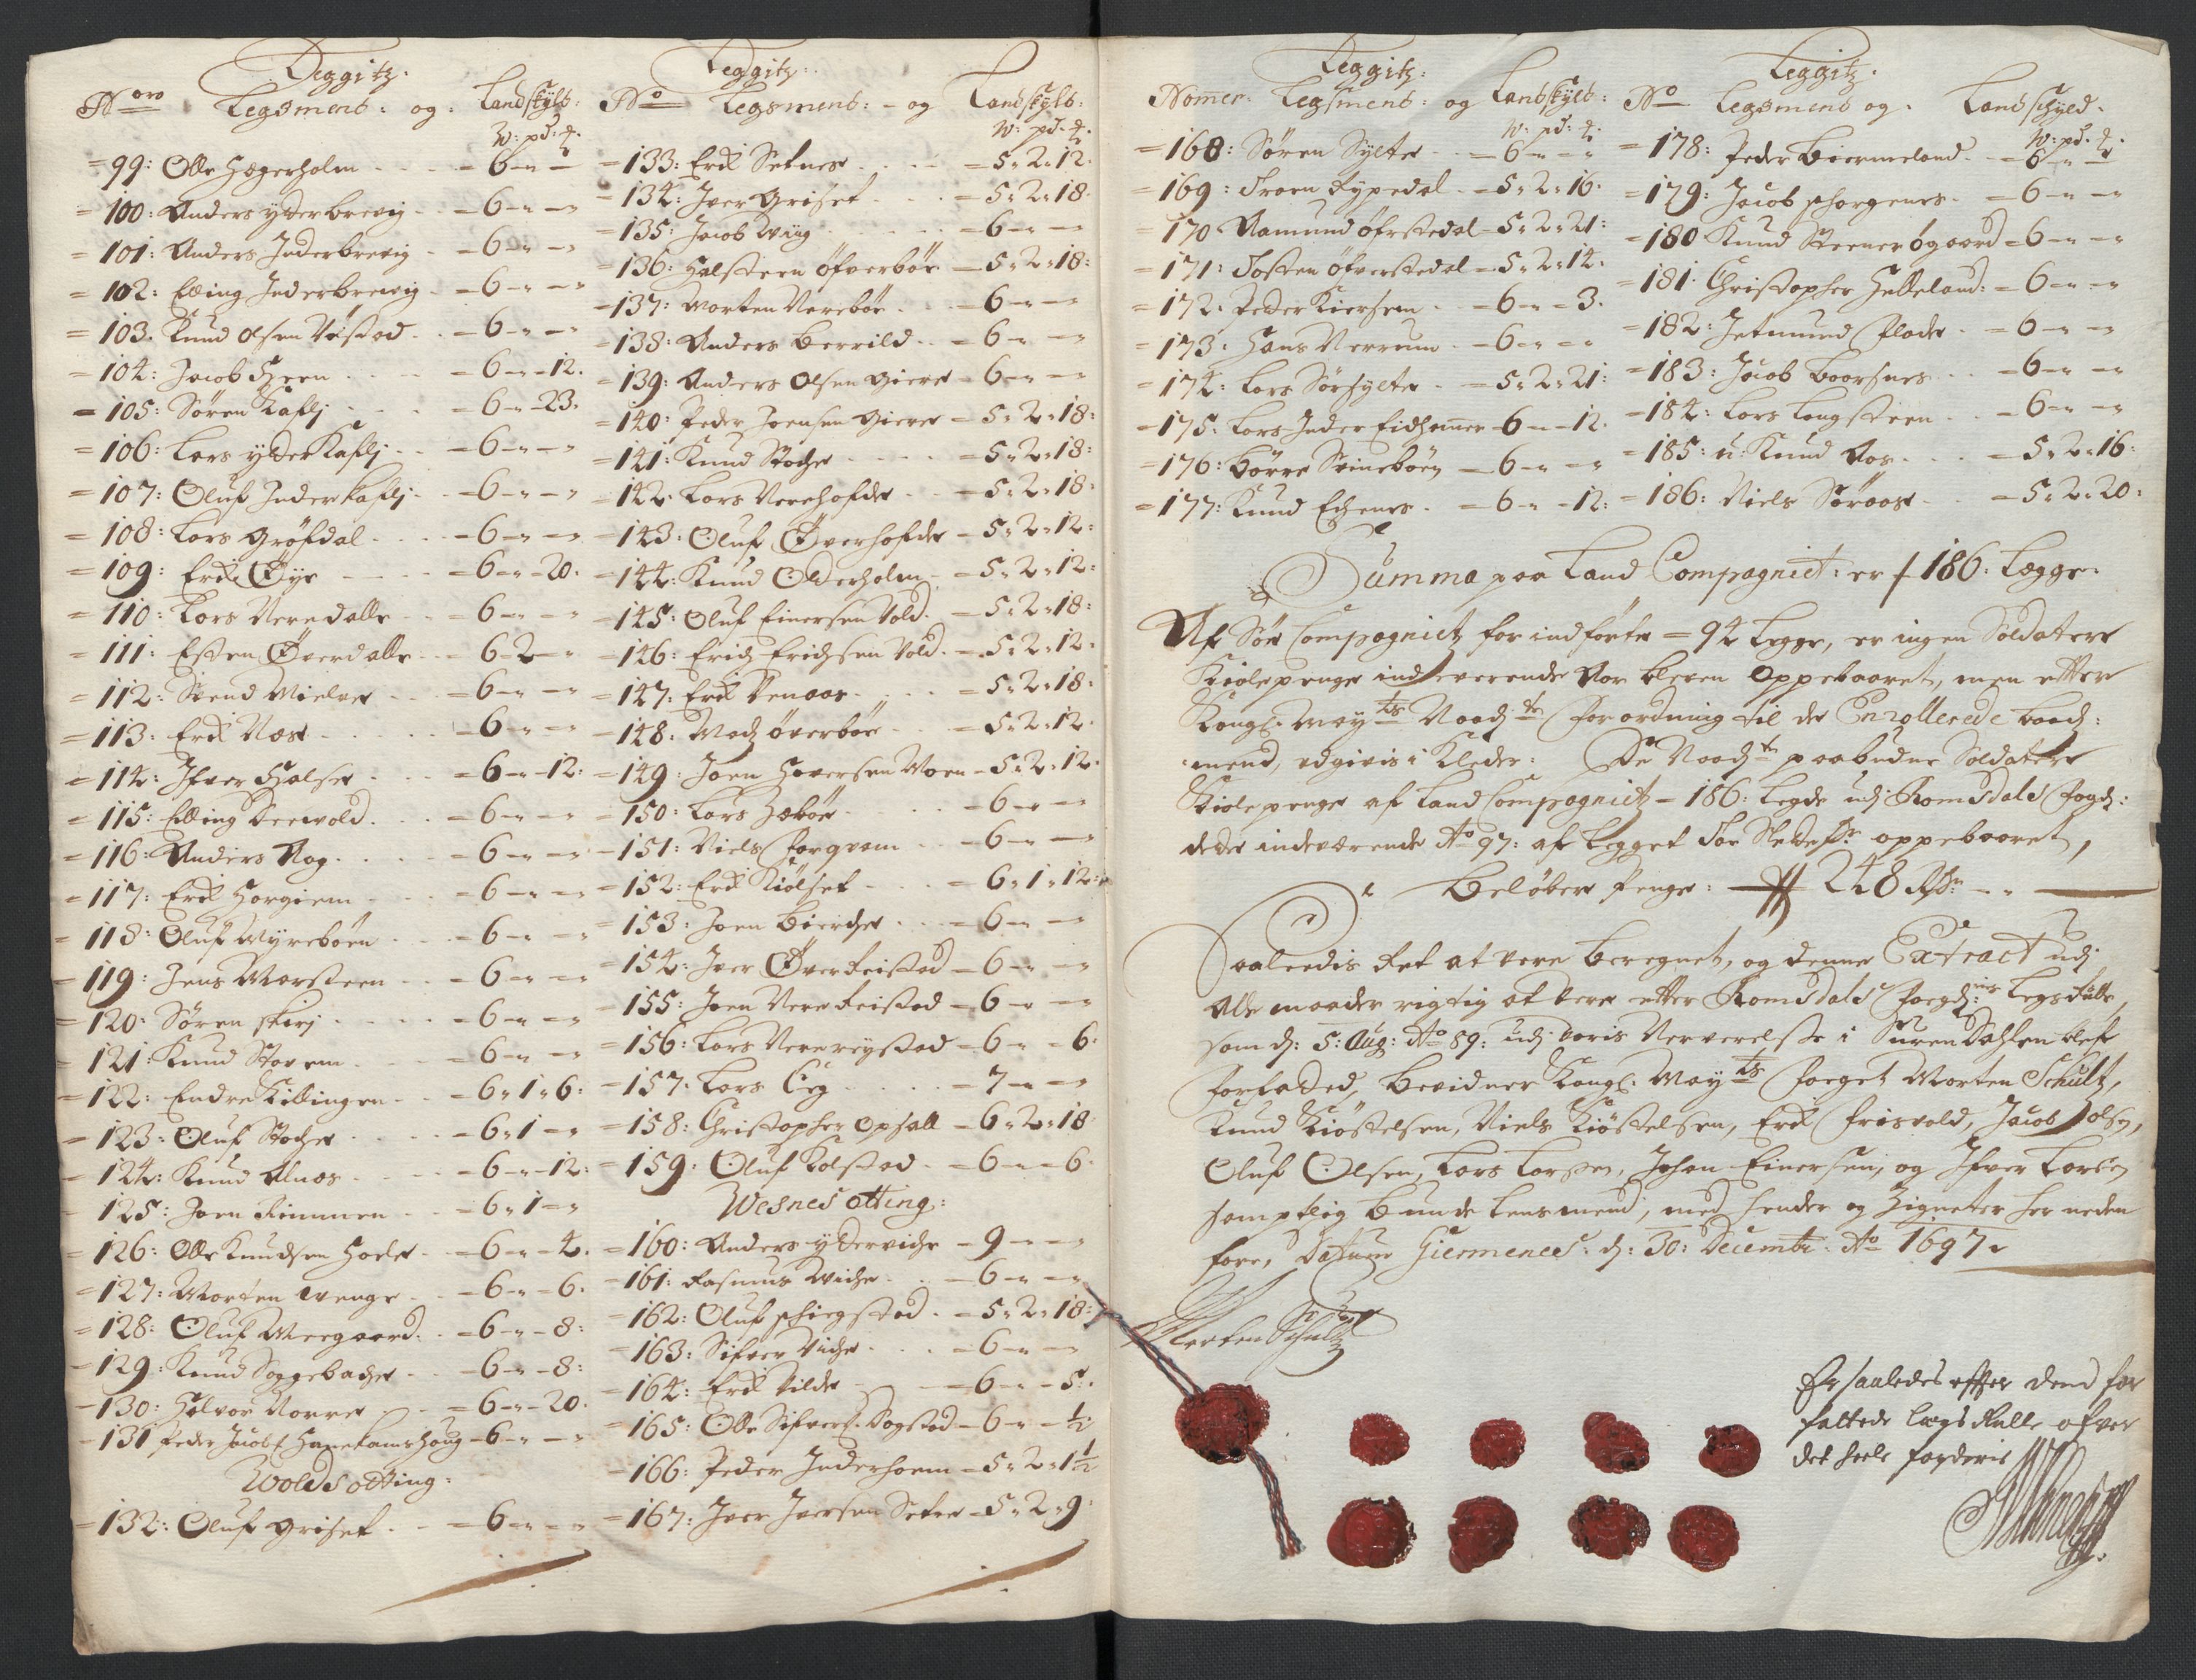 Leggitz.
Noro Legsmend: og: Landskyld:
W: pd: ₰:
99: Olle Hægerholm - 6 - -
100: Anders yderbrevig - 6 - -
101: Anders Inderbrevig - 6 - -
102: Elling Inderbrevig - 6 - -
103: Knud Olsen - 6 - -
104: Jacob Heen - 6 - 12.
105: Søren Kaflj - 6 - 23.
106: Lars yder Kaflj - 6 - -
107: Oluf Inder Kaflj - 6 - -
108: Lars Grøfdal - 6 - -
109: Erich Øye - 6 - 20.
110: Lars Neredalle - 6 - -
111: Esten Øverdalle - 6 - 2 -
112: Svend Mielve - 6 - -
113: Erich Næss - 6 - -
114: Ifver Hialset - 6 - 12.
115: Elling Beevold - 6 - -
116: Anders Aag - 6 - -
117: Erich Horgiem - 6 - -
118: Oluf Myrebøen - 6 - -
119: Jens Marsteen - 6 - -
120: Søren Skirj - 6 - -
121: Knud Storem - 6 - -
122: Endre Killingen - 6 - 1 - 6:
123: Oluf Stoche - 6 - 1 -
124: Knud Alnæs - 6 - 12:
125: Joen Rimmen - 6 - 1 -
126: Olle Knudsen Hoele - 6 - 4.
127: Morten Venge - 6 - 6.
128: Oluf Meegaard - 6 - 8:
129: Knud Soggebache - 6 - 8:
130: Halvor Norre - 6 - 20.
131 Peder Jacobs: Hanekamhaug - 6 - -
Wolds otting:
132: Oluf Griset - 6 - -
Leggitz:
No Legsmend: - og Landskyld:
W: pd: ₰.
133: Erich Setnes - 5 - 2 - 12.
134: Iver Griset - 5 - 2 - 18.
135: Jacob Wiig - 6 - -
136: Halsteen Øfverbøe - 5 - 2 - 18:
137: Morten Nerebøe - 6 - -
138: Anders Berrild - 6 - -
139: Anders Olsen Giere - 6 - -
140: Peder Joensen Giere - 5 - 2 - 18:
141: Knud Stoche - 5 - 2 - 18:
142: Lars Nerehofde - 5 - 2 - 18:
143: Oluf Øverhofde - 5 - 2 - 12:
144: Knud Olderholm - 5 - 2 - 12:
145: Oluf Einersen Vold - 5 - 2 - 18:
146: Erich Erichsen Vold - 5 - 2 - 12:
147: Erich Venaas - 5 - 2 - 18:
148: Mads Øverbøe - 5 - 2 - 12.
149: Joen Hoversen Moen - 5 - 2 - 12.
150: Lars Hæbøe - 6 - -
151: Niels Horgvam - 6 - -
152: Erich Kiølset - 6 - 1 - 12:
153: Joen Bierche - 6 - -
154: Iver Øver - 6 - -
155: Joen Nere - 6 - -
156: Lars Nere - 6 - 6.
157: Lars - 7 - -
158: Christopher Opsall - 6 - 2 - 18
159: Oluf Kolstad - 6 - 6.
Wesnes otting:
160: Anders yderviche - 9 - -
161: Rasmus Wiche - 6 - -
162: Oluf - 5 - 2 - 18:
163: Sifver Viche - 6 - -
164: Erich Vilde - 6 - 5.
165: Olle Sifvers: Dogstad - 6 - ½:
166: Peder Inderhoem - 5 - 2 - 1½
167: Iver Iversen Setre - 5 - 2 - 9:
Leggitz:
Nomer. Legsmend: og Landskyld:
W: pd: ₰.
168: Søren Sylte - 6 - -
169: Troen Rypedal - 5 - 2 - 16.
170 Aamund Øfrstedal - 5 - 2 - 21:
171: Tosten Øfverstedal - 5 - 2 - 14.
172: Peder Kiersem - 6 - 3.
173: Hans Verrum - 6 - -
174: Lars Sørsylte - 5 - 2 - 21:
175: Lars Inder Eidhammer - 6 - 12.
176: Børre Svinebøen - 6 - -
177: Knud Echenes - 6 - 12:
Leggitz.
No Legsmend og. Landschyld.
W: pd. ₰.
178: Peder Biermeland - 6 - -
179: Jacob Schorgenes - 6 - -
180 Knud Steenerøgaard - 6 - -
181: Christopher Helleland: - 6 - -
182: Jetmund Flode - 6 - -
183: Jacob Boorsnes - 6 - -
184: Lars Langsteen - 6 - -
185: Knud Aas - 5 - 2 - 16:
186: Niels Søraas - 5 - 2 - 20:
Summa paa Land Compagniet: er / 186. Legge:
Af Søe Compagniet for indførte - 94 Legge, er ingen Soldaters
Kiole penge indeverende Aar bleven Oppebaaret, men efter
Kongl: Mayts Naadigste forordning til de Enrollerede baads:
mend, udgivis i Kleder: De Naadigst paabudne Soldaters
Kiole penge af Land Compagniet - 186: Legde udj Romsdals Fogd:
dette indeværende Ao 97: af Legget oppebaaret,
Beløber Penge: 248 Rdr - -
Saaledis Ret at vere beregnet, og denne Extract udj
Alle maader rigtig at vere efter Romsdals Fogd:ris Legs Rulle,
som d: 5: Aug: Ao 89: udj voris Nerverelse i SurenDahlen blef
forfatted, bevidner Kongl: Mayts Foeget Morten Schultz,
Knud Kiøstelsen, Niels Kiøstelsen, Erich Frisvold, Jacob Olsen,
Oluf Olsen, Lars Larsen, Johan Einersen, og Ifver Larsen
samptlig Bunde Lensmend, med hender og Zigneter her neden
fore, Datum Giermenes: d: 30: Decembr: Ao 1697.
Morten Schultz
Er saaledes efter dend for
fattede lægs Rulle ofver
det heele fogderie